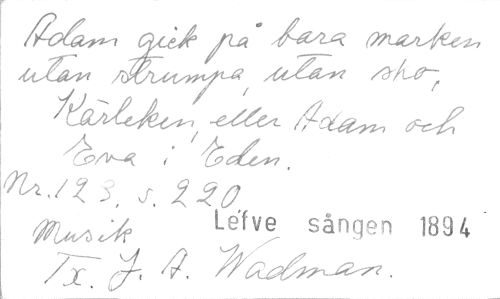 Adam gick på bara marken
utan strumpa, utan sko,
Kärleken, eller Adam och
Eva i Eden.
Nr. 123, s. 220
Lefve sången 1894
Musik
Tx. J. A. Wadman.